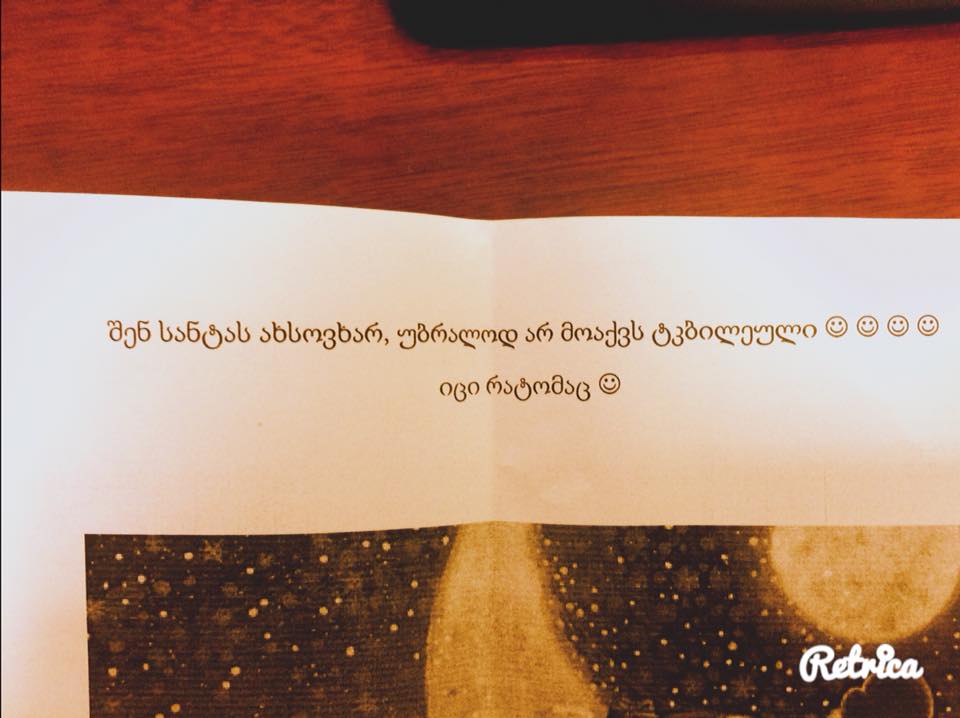 შენ სანტას ახსოვხარ, უბრალოდ არ მოაქვს ტკბილეული ☺ ☺ ☺ ☺
იცი რატომაც ☺
Retrica